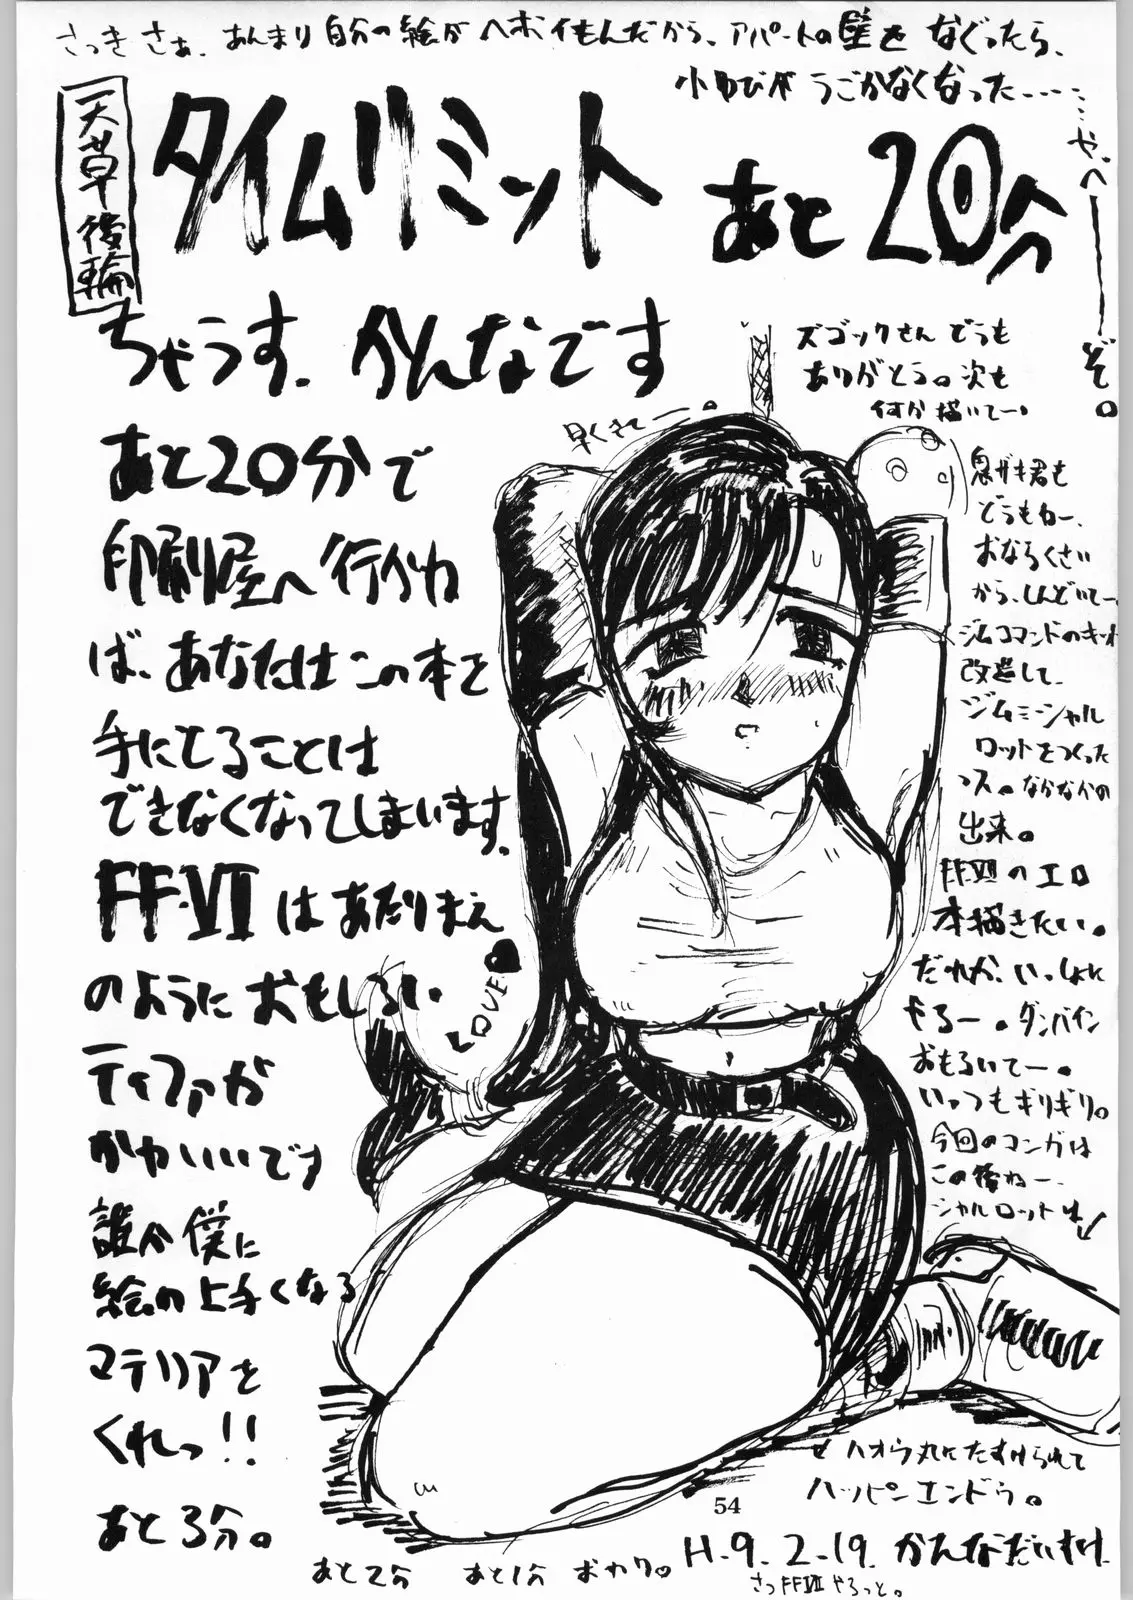 さっきさぁ、あんまり自分の絵がヘボイもんだから、アパートの壁をなぐったら、
小ゆびがうごかなくなった……
…や、べーーぞ。
天草後輪
タイムリミット あと20分
ちゃうす、かんなです
あと20分で
印刷屋へ行かね
ば、あなたはこの本を
手にてることは
できなくなってしまいます。
FF・VIIはあたりまえ
のようにおもしろい
ティファが
かわいいです
誰か僕に
絵の上手くなる
マテリアを
くれっ!!
あと3分。
あと2分 あと1分 おわり。
早くきてー。
LOVE
ズゴックさんどうも
ありがとう。次も
何か描いてー。
君も
どうもねー、
おならくさい
から、しんどいてー、
ジムコマンドのキット
改造して、
ジムミーシャル
ロットをつくった
ッス。なかなかの
出来。
FFVIIのエロ
本描きたい。
だれか、いっしょに
やろー。ダンバイン
おもろいてー。
いっつもギリギリ。
今回のマンガは
この後ねー、
シャルロットは
ハオウ丸にたすけられて
ハッピーエンドゥ。
54
H.9.2.19. かんなだいすけ
さっFFVIIやろっと。